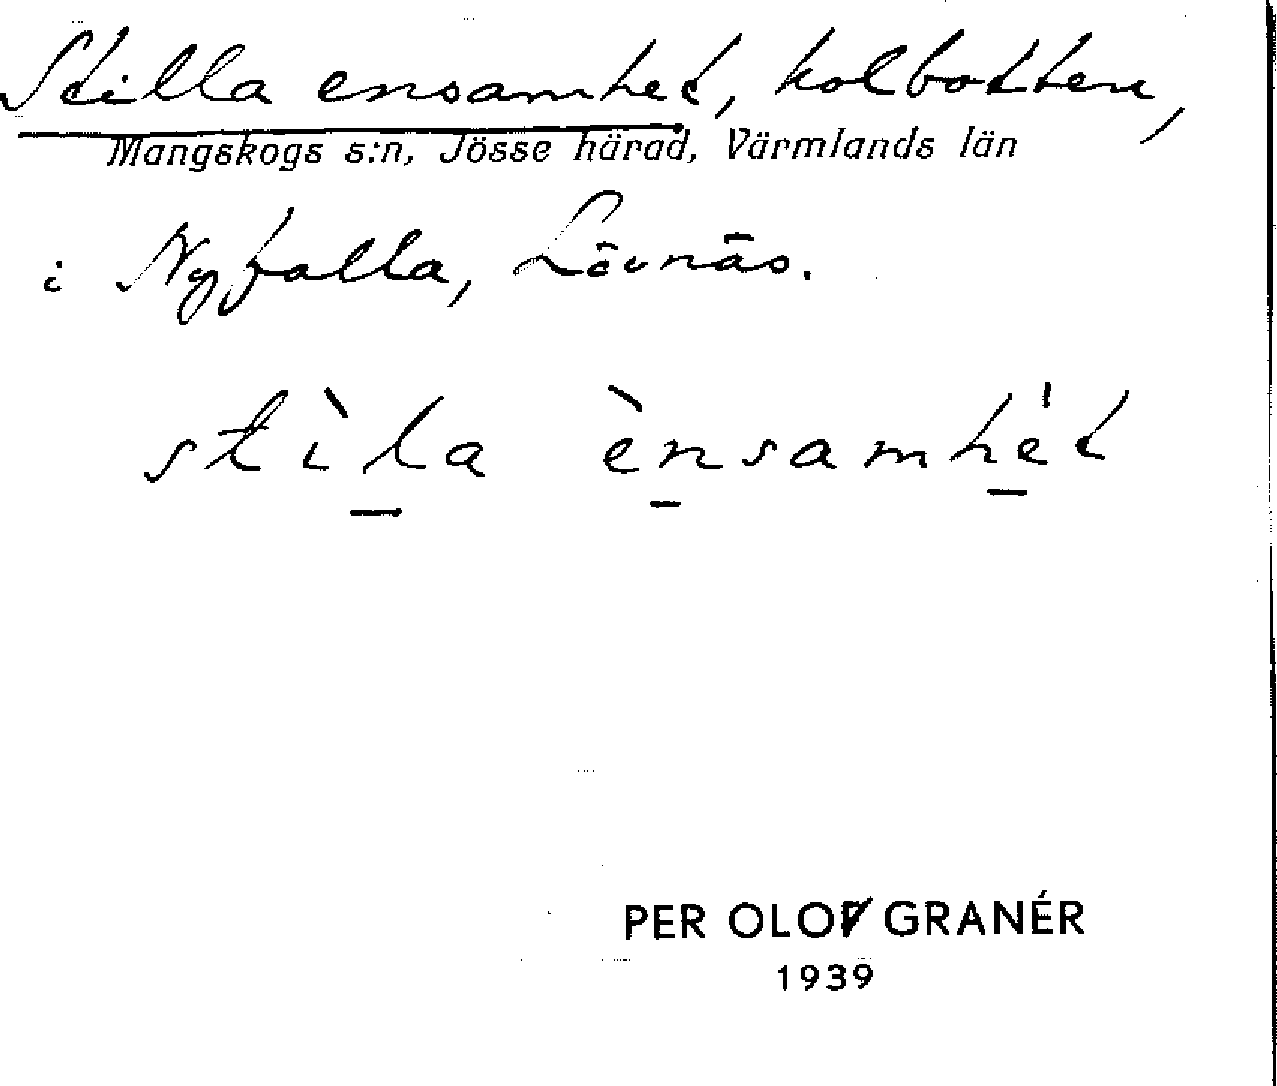 Stilla ensamhet, kolbotten,
Mangskogs s:n, Jösse härad, Värmlands län
i Nyfalla, Lövnäs.
stìla ènsamhét
PER OLOV GRANÉR
1939